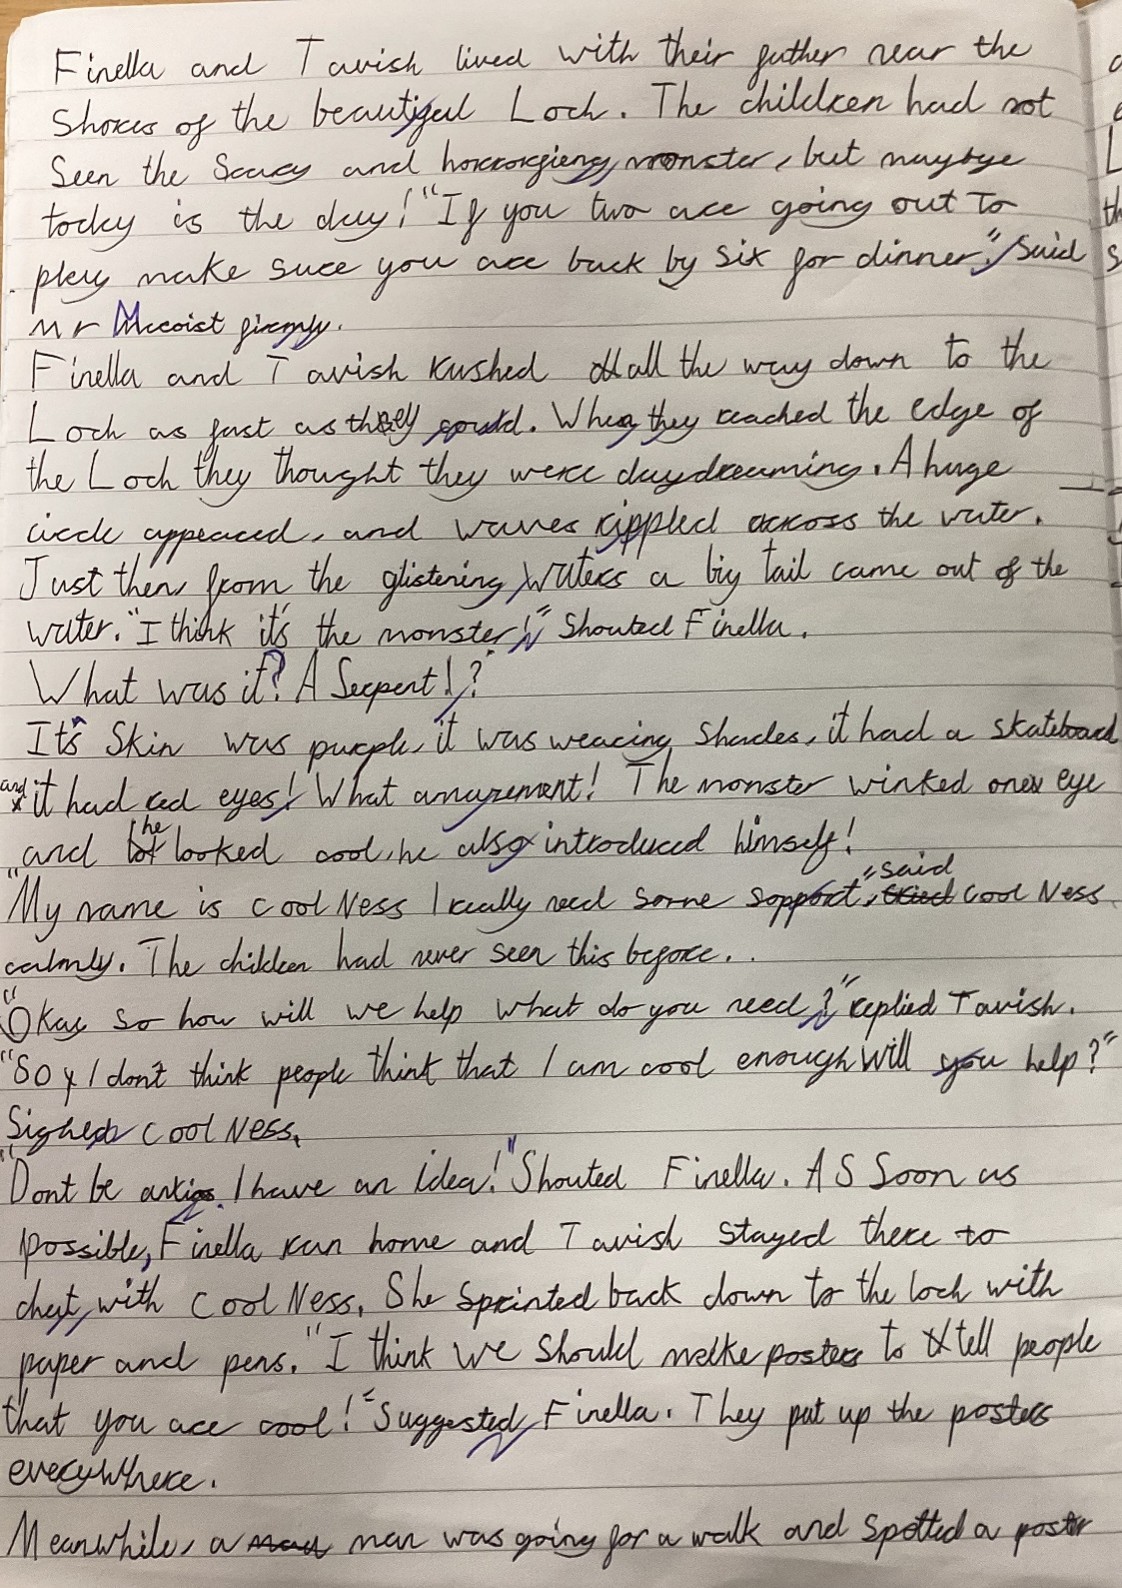 Finella and Tavish lived with their father near the
Shores of the beautiful Loch. The children had not
Seen the Scary and horrorfieng, monster, but maybye
today is the day! "If you two are going out to
play make sure you are back by six for dinner." Said
Mr Mccoist firmly.
Finella and Tavish rushed all the way down to the
Loch as fast as they could. When they reached the edge of
the Loch they thought they were daydreaming. A huge
circle appeared, and waves rippled across the water.
Just then, from the glistening waters a big tail came out of the
water. "I think it's the monster!" Shouted Finella.
What was it? A Serpent!?
It's Skin was purple, it was wearing Shades, it had a skateboard
and it had red eyes! What amazement! The monster winked one eye
and he looked cool, he also introduced himself!
"My name is Cool Ness I really need some support," said Cool Ness
calmly. The children had never seen this before..
"Okay so how will we help what do you need?" replied Tavish.
"So I don't think people think that I am cool enough will you help?"
Sighed Cool Ness.
"Dont be I have an idea!" Shouted Finella. AS Soon as
possible, Finella ran home and Tavish stayed there to
chat, with Cool Ness. She Sprinted back down to the loch with
paper and pens. "I think we should make posters to tell people
that you are cool!" Suggested Finella. They put up the posters
everywhere.
Meanwhile, a man was going for a walk and spotted a poster